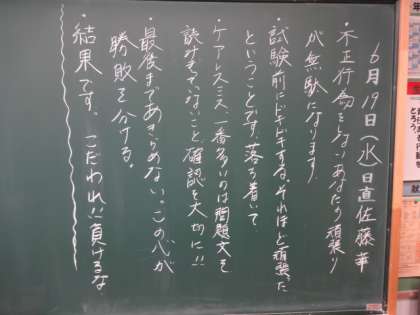 6月19日(水)日直佐藤華
・不正行為をしない。あなたの頑張り
が無駄になります
・試験前にドキドキする。それほど頑張った
ということです。落ち着いて
・ケアレスミス、一番多いのは問題文を
読みきっていないこと 確認を大切に!!
・最後まであきらめない。この心が
勝敗を分ける。
結果です。こだわれ!!負けるな